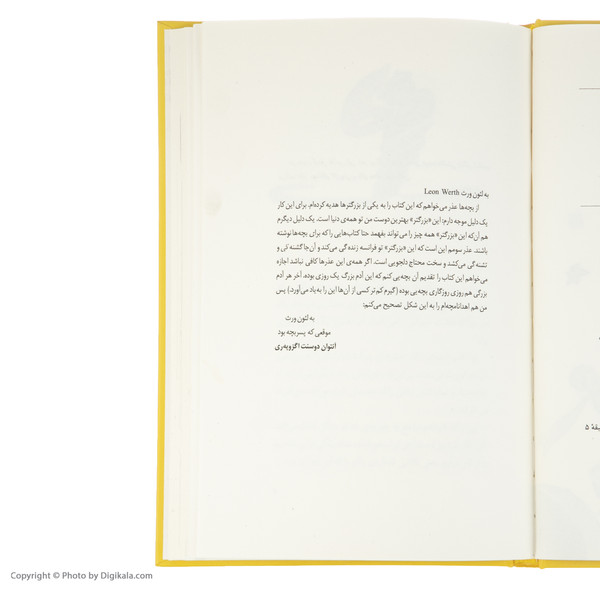 به لئون ورث Leon Werth
از بچه‌ها عذر می‌خواهم که این کتاب را به یکی از بزرگترها هدیه کرده‌ام. برای این کار
یک دلیل موجه دارم: این «بزرگتر» بهترین دوست من تو همه‌ی دنیا است. یک دلیل دیگرم
هم آن‌که این «بزرگتر» همه چیز را می‌تواند بفهمد حتا کتاب‌هایی را که برای بچه‌ها نوشته
باشند. عذر سومم این است که این «بزرگتر» تو فرانسه زنده‌گی می‌کند و آن‌جا گشنه‌گی و
تشنه‌گی می‌کشد و سخت محتاج دلجویی است. اگر همه‌ی این عذرها کافی نباشد اجازه
می‌خواهم این کتاب را تقدیم آن بچه‌یی کنم که این آدم بزرگ یک روزی بوده. آخر هر آدم
بزرگی هم روزی روزگاری بچه‌یی بوده (گیرم کم‌تر کسی از آن‌ها این را به یاد می‌آورد.) پس
من هم اهدانامچه‌ام را به این شکل تصحیح می‌کنم:
به لئون ورث
موقعی که پسربچه بود.
آنتوان دوسنت اگزوپه‌ری
۵
Copyright © Photo by Digikala.com